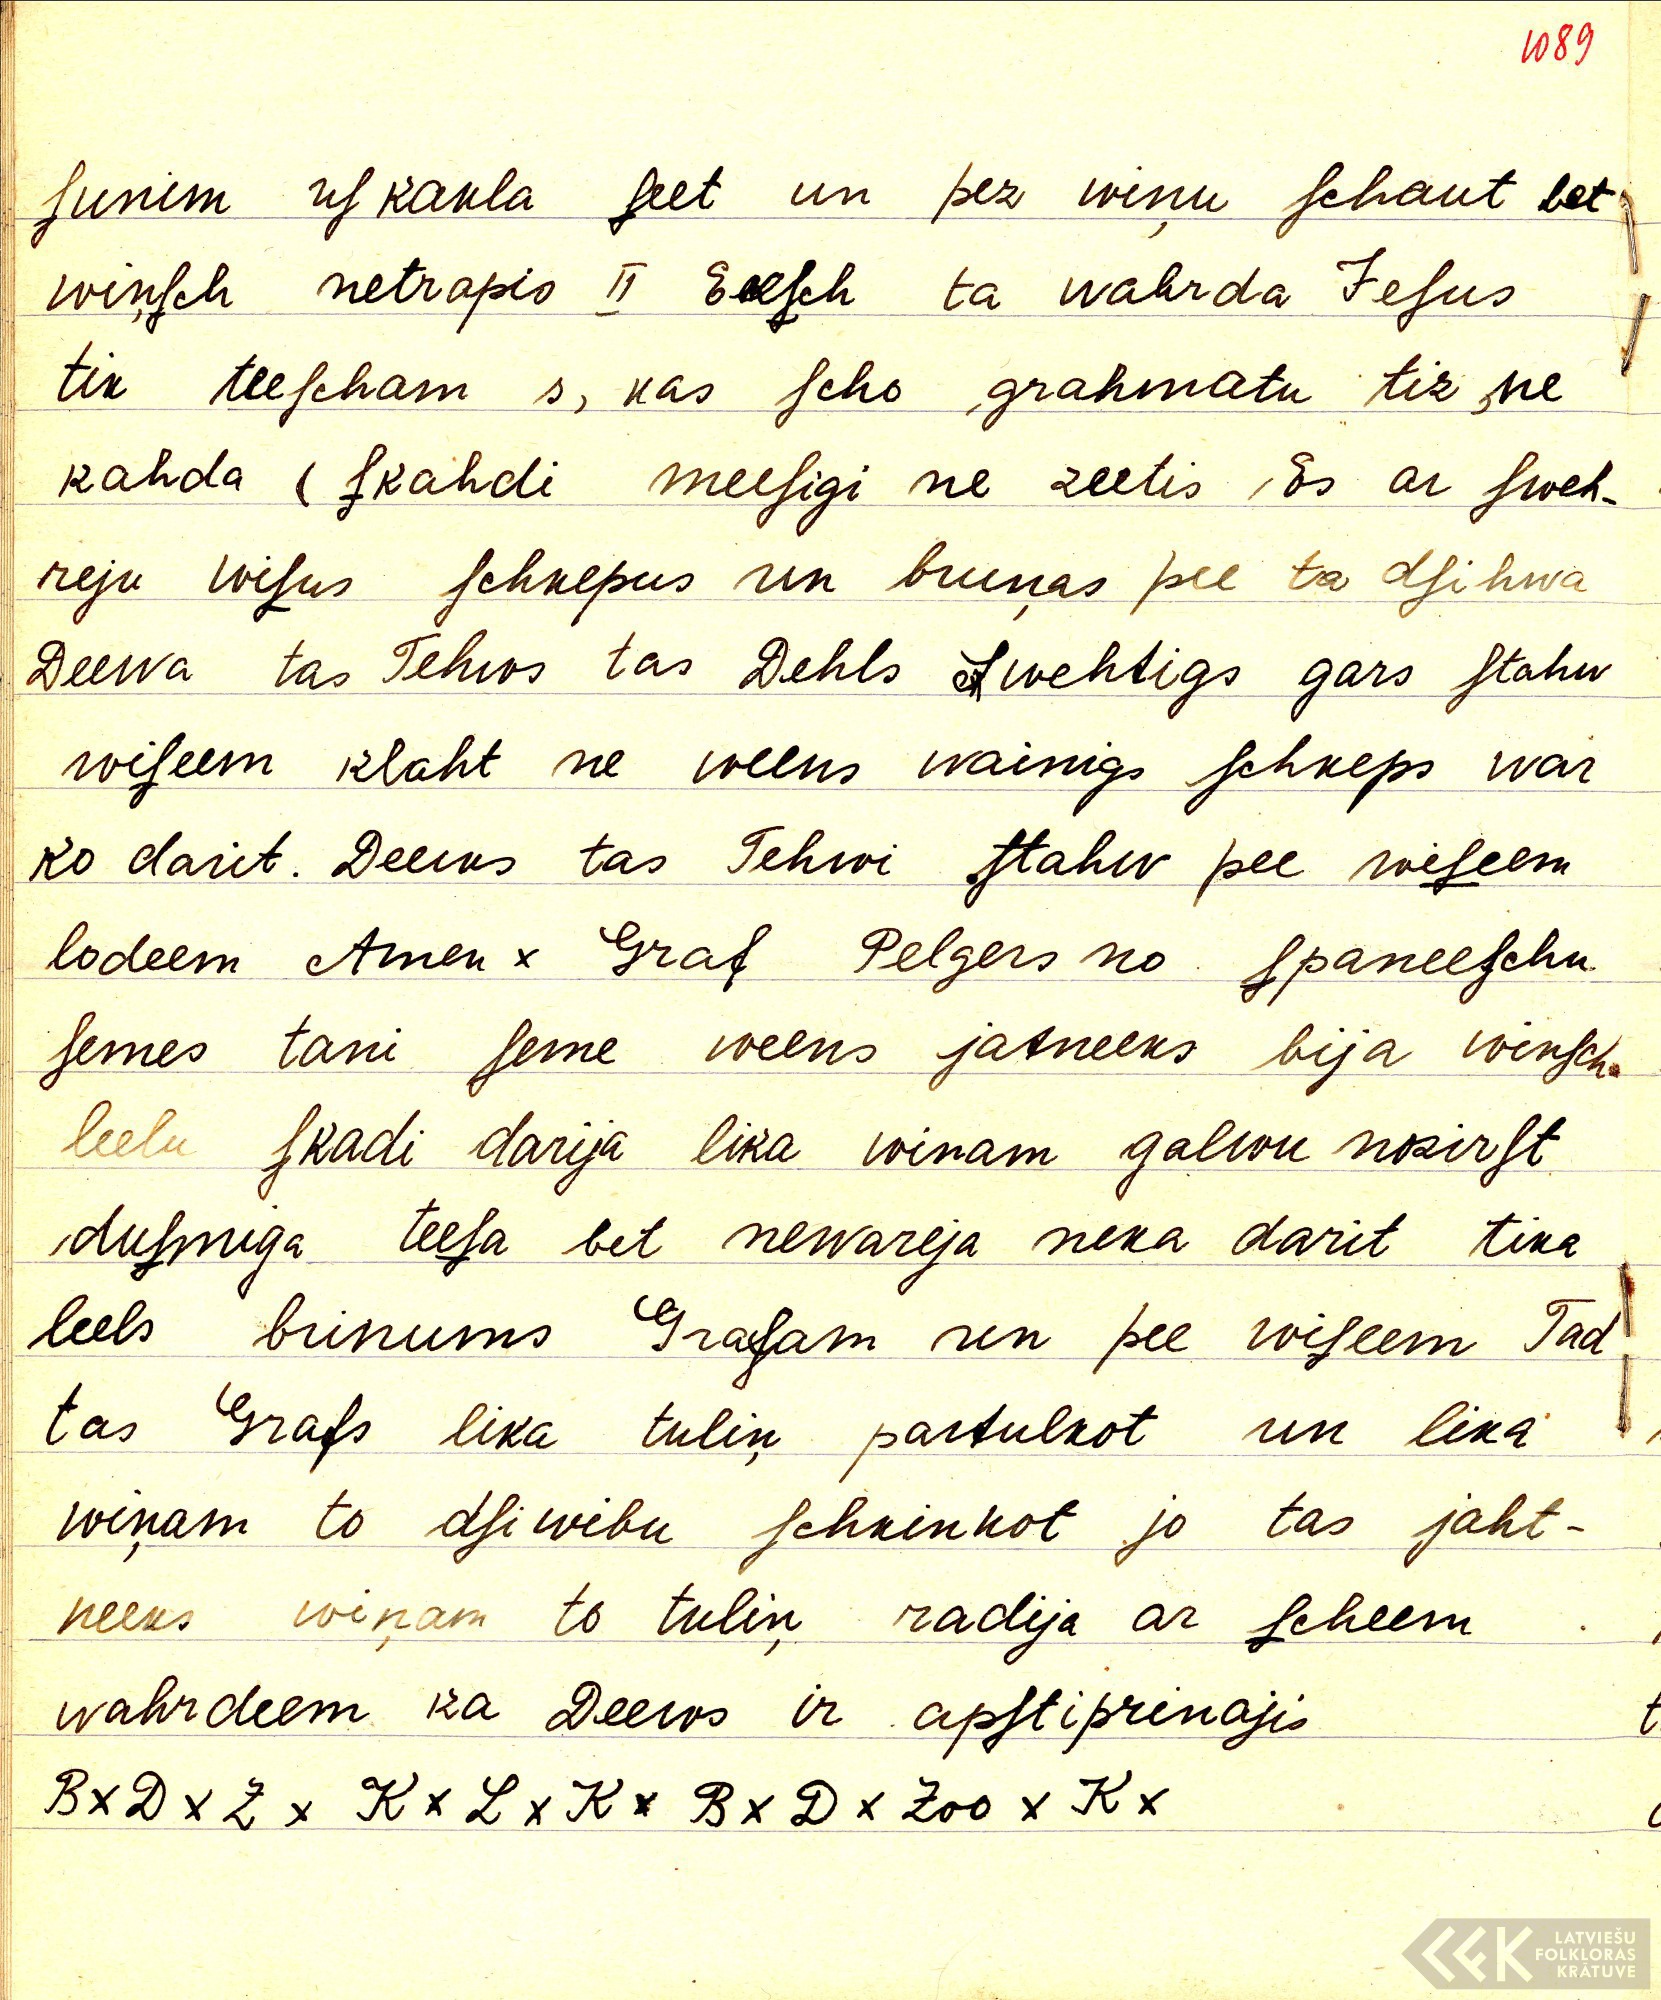 1089
ſunim uſ kakla ſeet un pez wiņu ſchaut bet
wiņſch netrapis II Eekſch ta wahrda Jeſus
tik teeſcham s, kas ſcho grahmatu tiz ne
kahda ( ſkahdi meeſigi ne zeetis, Es ar ſweh-
reju wiſus ſchkepus un bruņas pee ta dſihwa
Deewa tas Tehws tas Dehls Swehtigs gars ſtahw
wiſeem klaht ne weens wainigs ſchkeps war
ko darit. Deews tas Tehwi ſtahw pee wiſeem
lodeem Amen x Graf Pelgers no ſpaneeſchu
ſemes tani ſeme weens jatneeks bija winſch
leelu ſkadi darija lika winam galwu nozirſt
duſmiga teeſa bet newareja neka darit tika
leels brinums Grafam un pee wiſeem Tad
tas Grafs lika tuliņ partulkot un lika
wiņam to dſiwibu ſchkinkot jo tas jaht-
neeks wiņam to tuliņ radija ar ſcheem
wahrdeem ka Deews ir apſtiprinajis
B x D x Z x K x L x K x B x D x Zoo x K x
LATVIEŠU
FOLKLORAS
KRĀTUVE